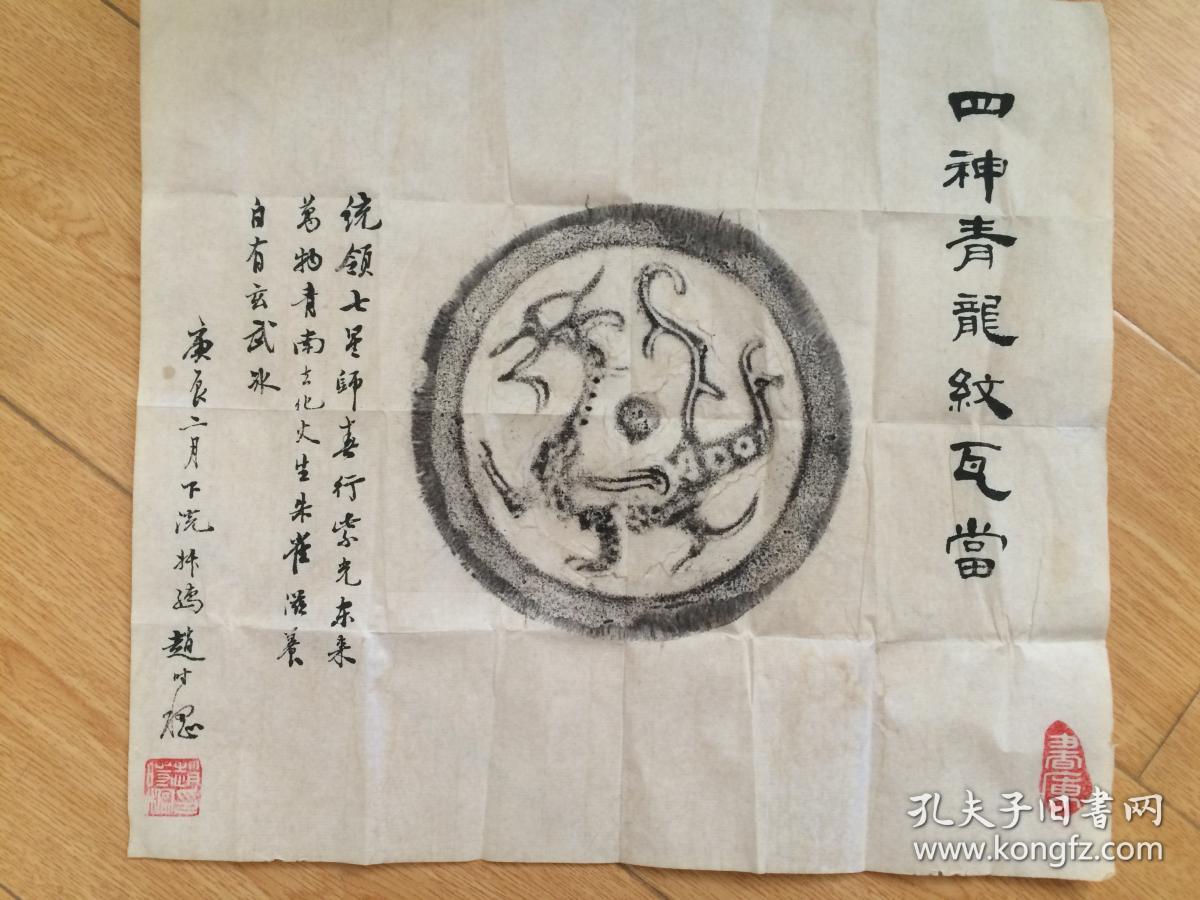 四神青龍纹瓦當
统領七星師春行紫光东来
萬物青南去化火生朱雀滋养
自有玄武水
庚辰二月下浣叔孺趙时棢
書庫
孔夫子旧书网
www.kongfz.com